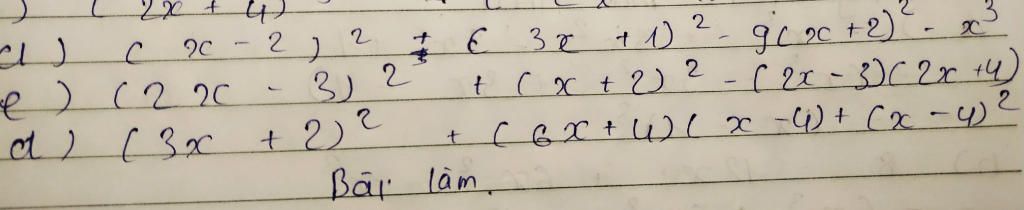 ) (2x + 4)
d) (x - 2)² + (3x + 1)² - 9(x + 2)² - x³
e) (2x - 3)² + (x + 2)² - (2x - 3)(2x + 4)
d) (3x + 2)² + (6x + 4)(x - 4) + (x - 4)²
Bài làm.